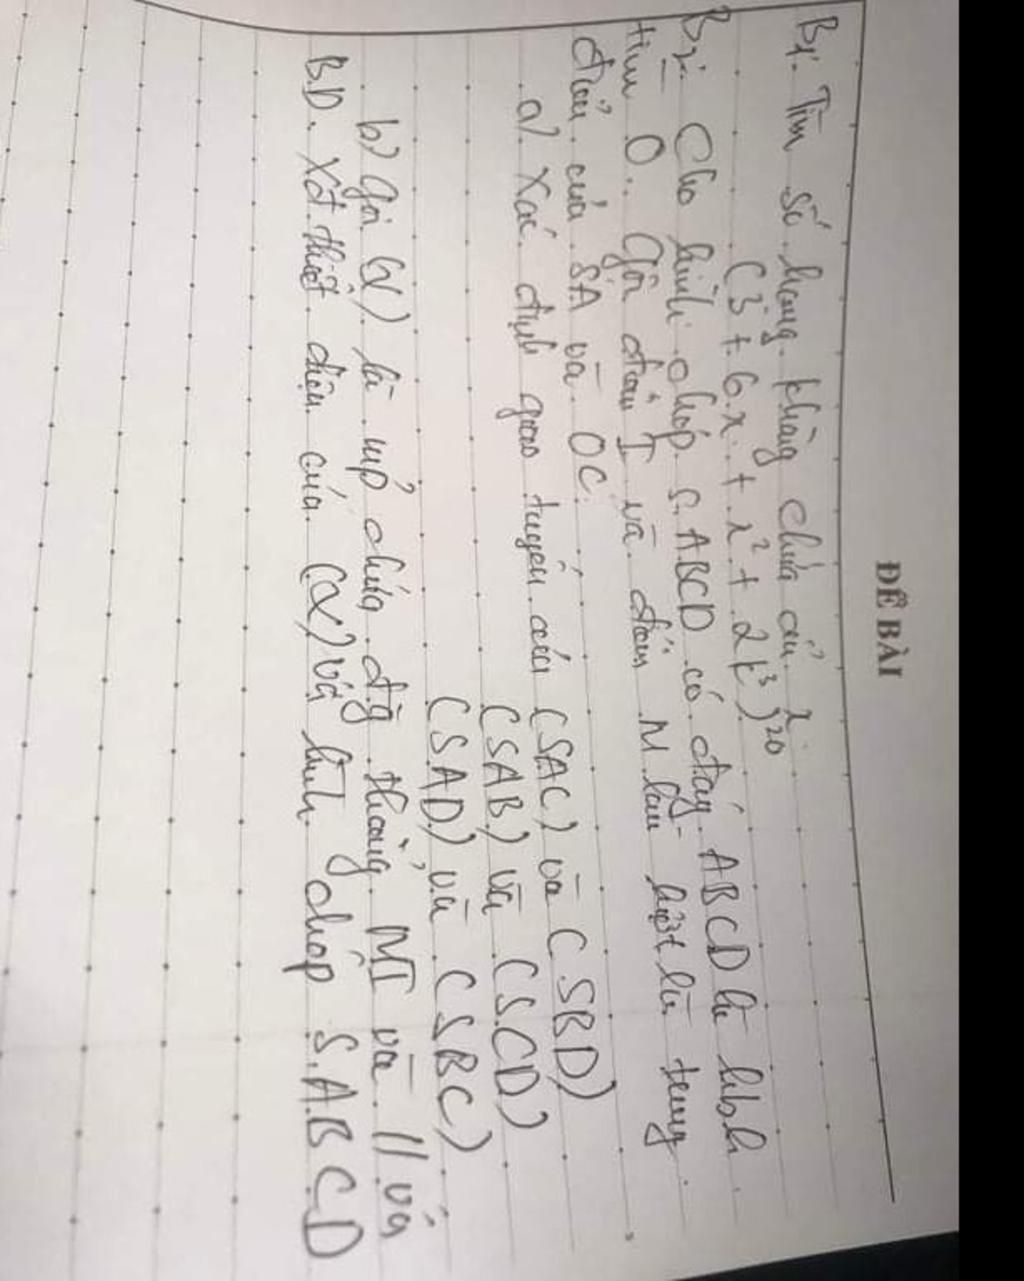 ĐỀ BÀI
B1: Tìm số hạng không chứa ẩn x.
(3 + 6x + x² + 2x³)²⁰
B2: Cho hình chóp S.ABCD có đáy ABCD là hbh
tâm O. Gọi điểm I và điểm M lần lượt là trung
điểm của SA và OC.
a) Xác định giao tuyến của (SAC) và (SBD)
(SAB) và (SCD)
(SAD) và (SBC)
b) Gọi (α) là mp chứa đg thẳng MI và // với
BD. Xđ thiết diện của (α) và hình chóp S.ABCD